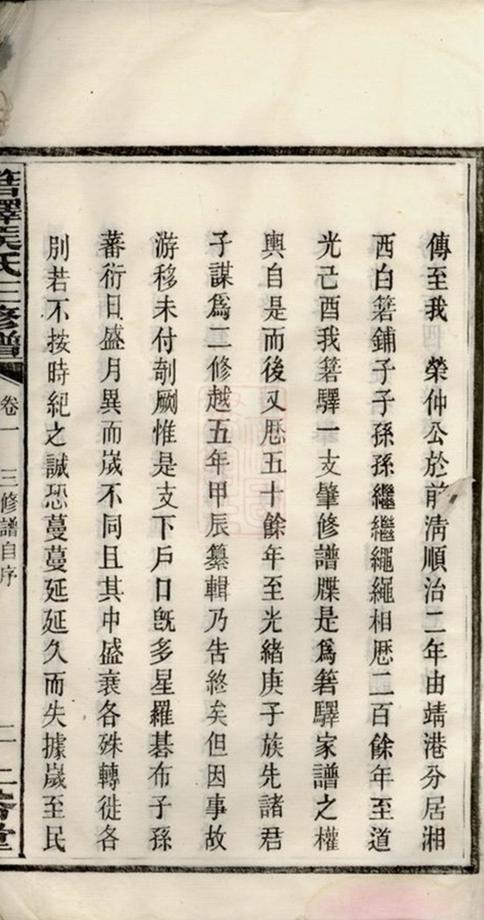 傳至我　榮仲公於前淸順治二年由靖港分居湘
西白箬鋪子子孫孫繼繼繩繩相歷二百餘年至道
光己酉我箬驛一支肇修譜牒是爲箬驛家譜之權
輿自是而後又歷五十餘年至光緒庚子族先諸君
子謀爲二修越五年甲辰纂輯乃吿終矣但因事故
游移未付剞劂惟是支下戶口旣多星羅碁布子孫
蕃衍日盛月異而歲不同且其中盛衰各殊轉徙各
別若不按時紀之誠恐蔓蔓延延久而失據歲至民
箬驛 氏三修譜
卷一
三修譜自序
二
堂